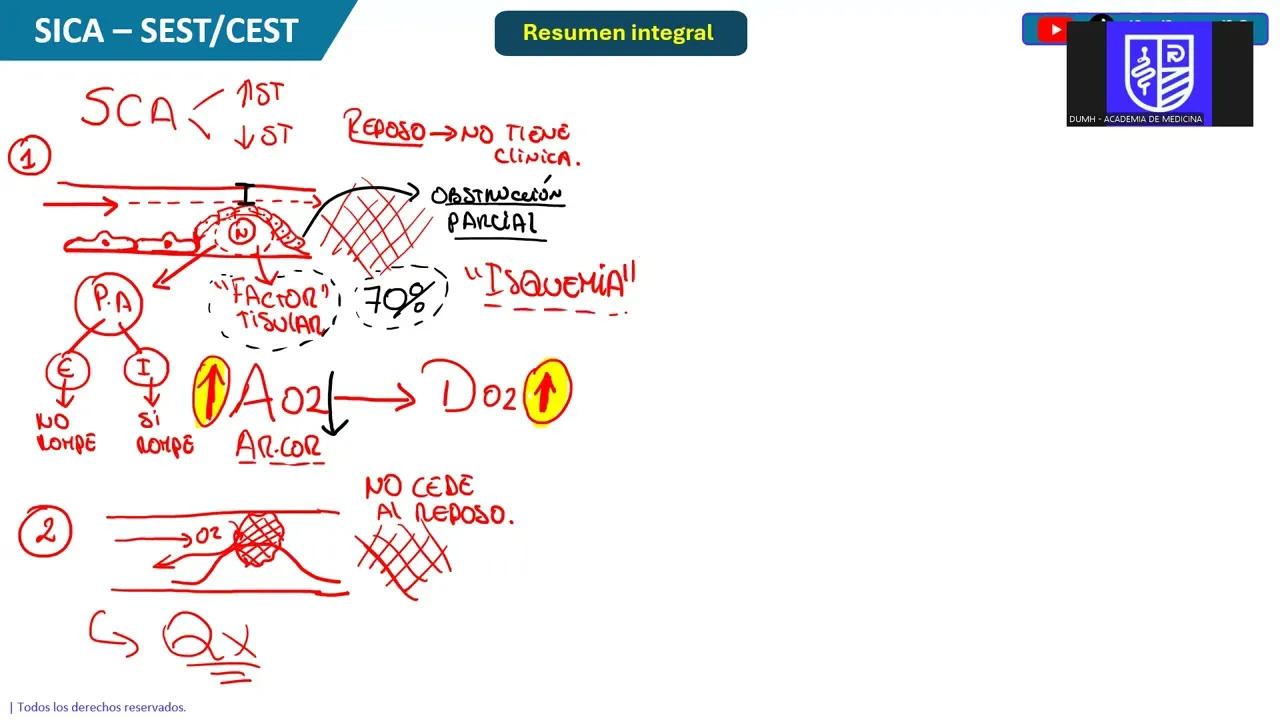 SICA – SEST/CEST
Resumen integral
DUMH - ACADEMIA DE MEDICINA
SCA
↑ST
↓ST
REPOSO → NO TIENE
CLINICA.
1
OBSTRUCCIÓN
PARCIAL
N
P.A
"FACTOR"
TISULAR
70%
"ISQUEMIA"
E
I
NO
ROMPE
SI
ROMPE
↑ AO2 ↓ → DO2 ↑
AR.COR
2
O2
NO CEDE
AL REPOSO.
Qx
| Todos los derechos reservados.